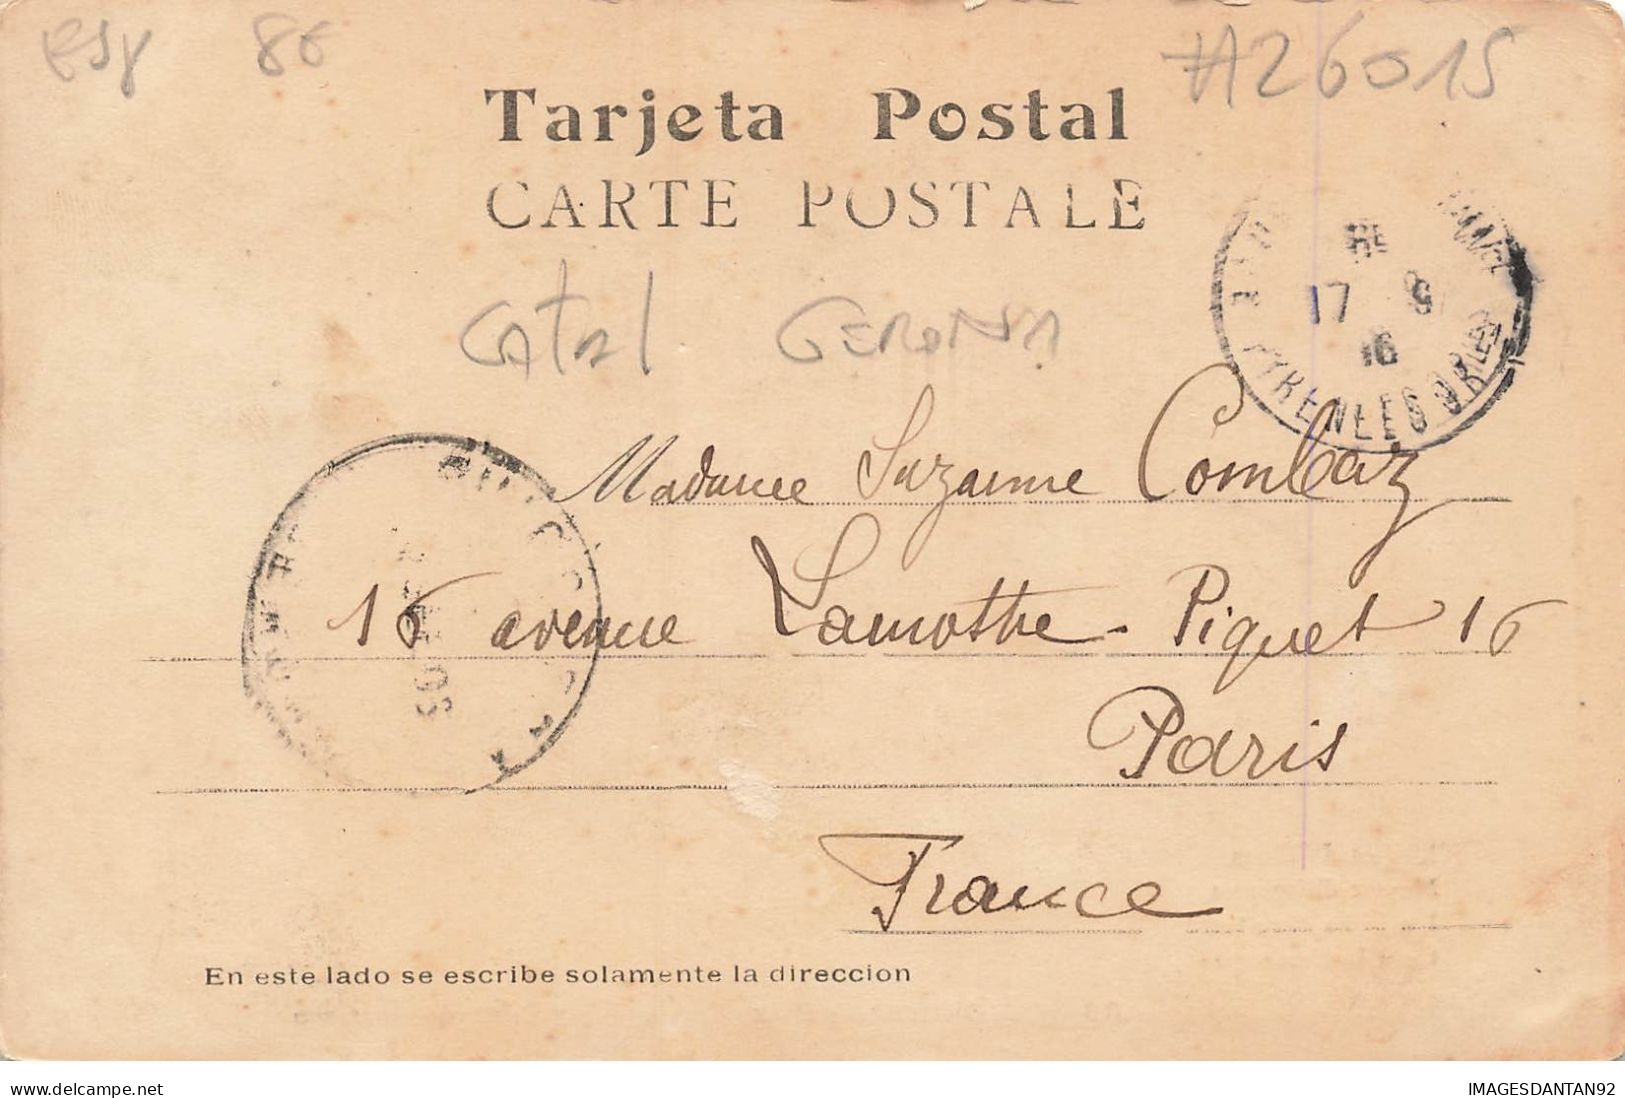 esp 8€ #A26015
Tarjeta Postal
CARTE POSTALE
Catal GERONA
17 9
16
PYRENEES ORLES
Madame Suzanne Combaz
16 avenue Lamothe-Piquet 16
Paris
France
En este lado se escribe solamente la direccion
delcampe.net
IMAGESDANTAN92